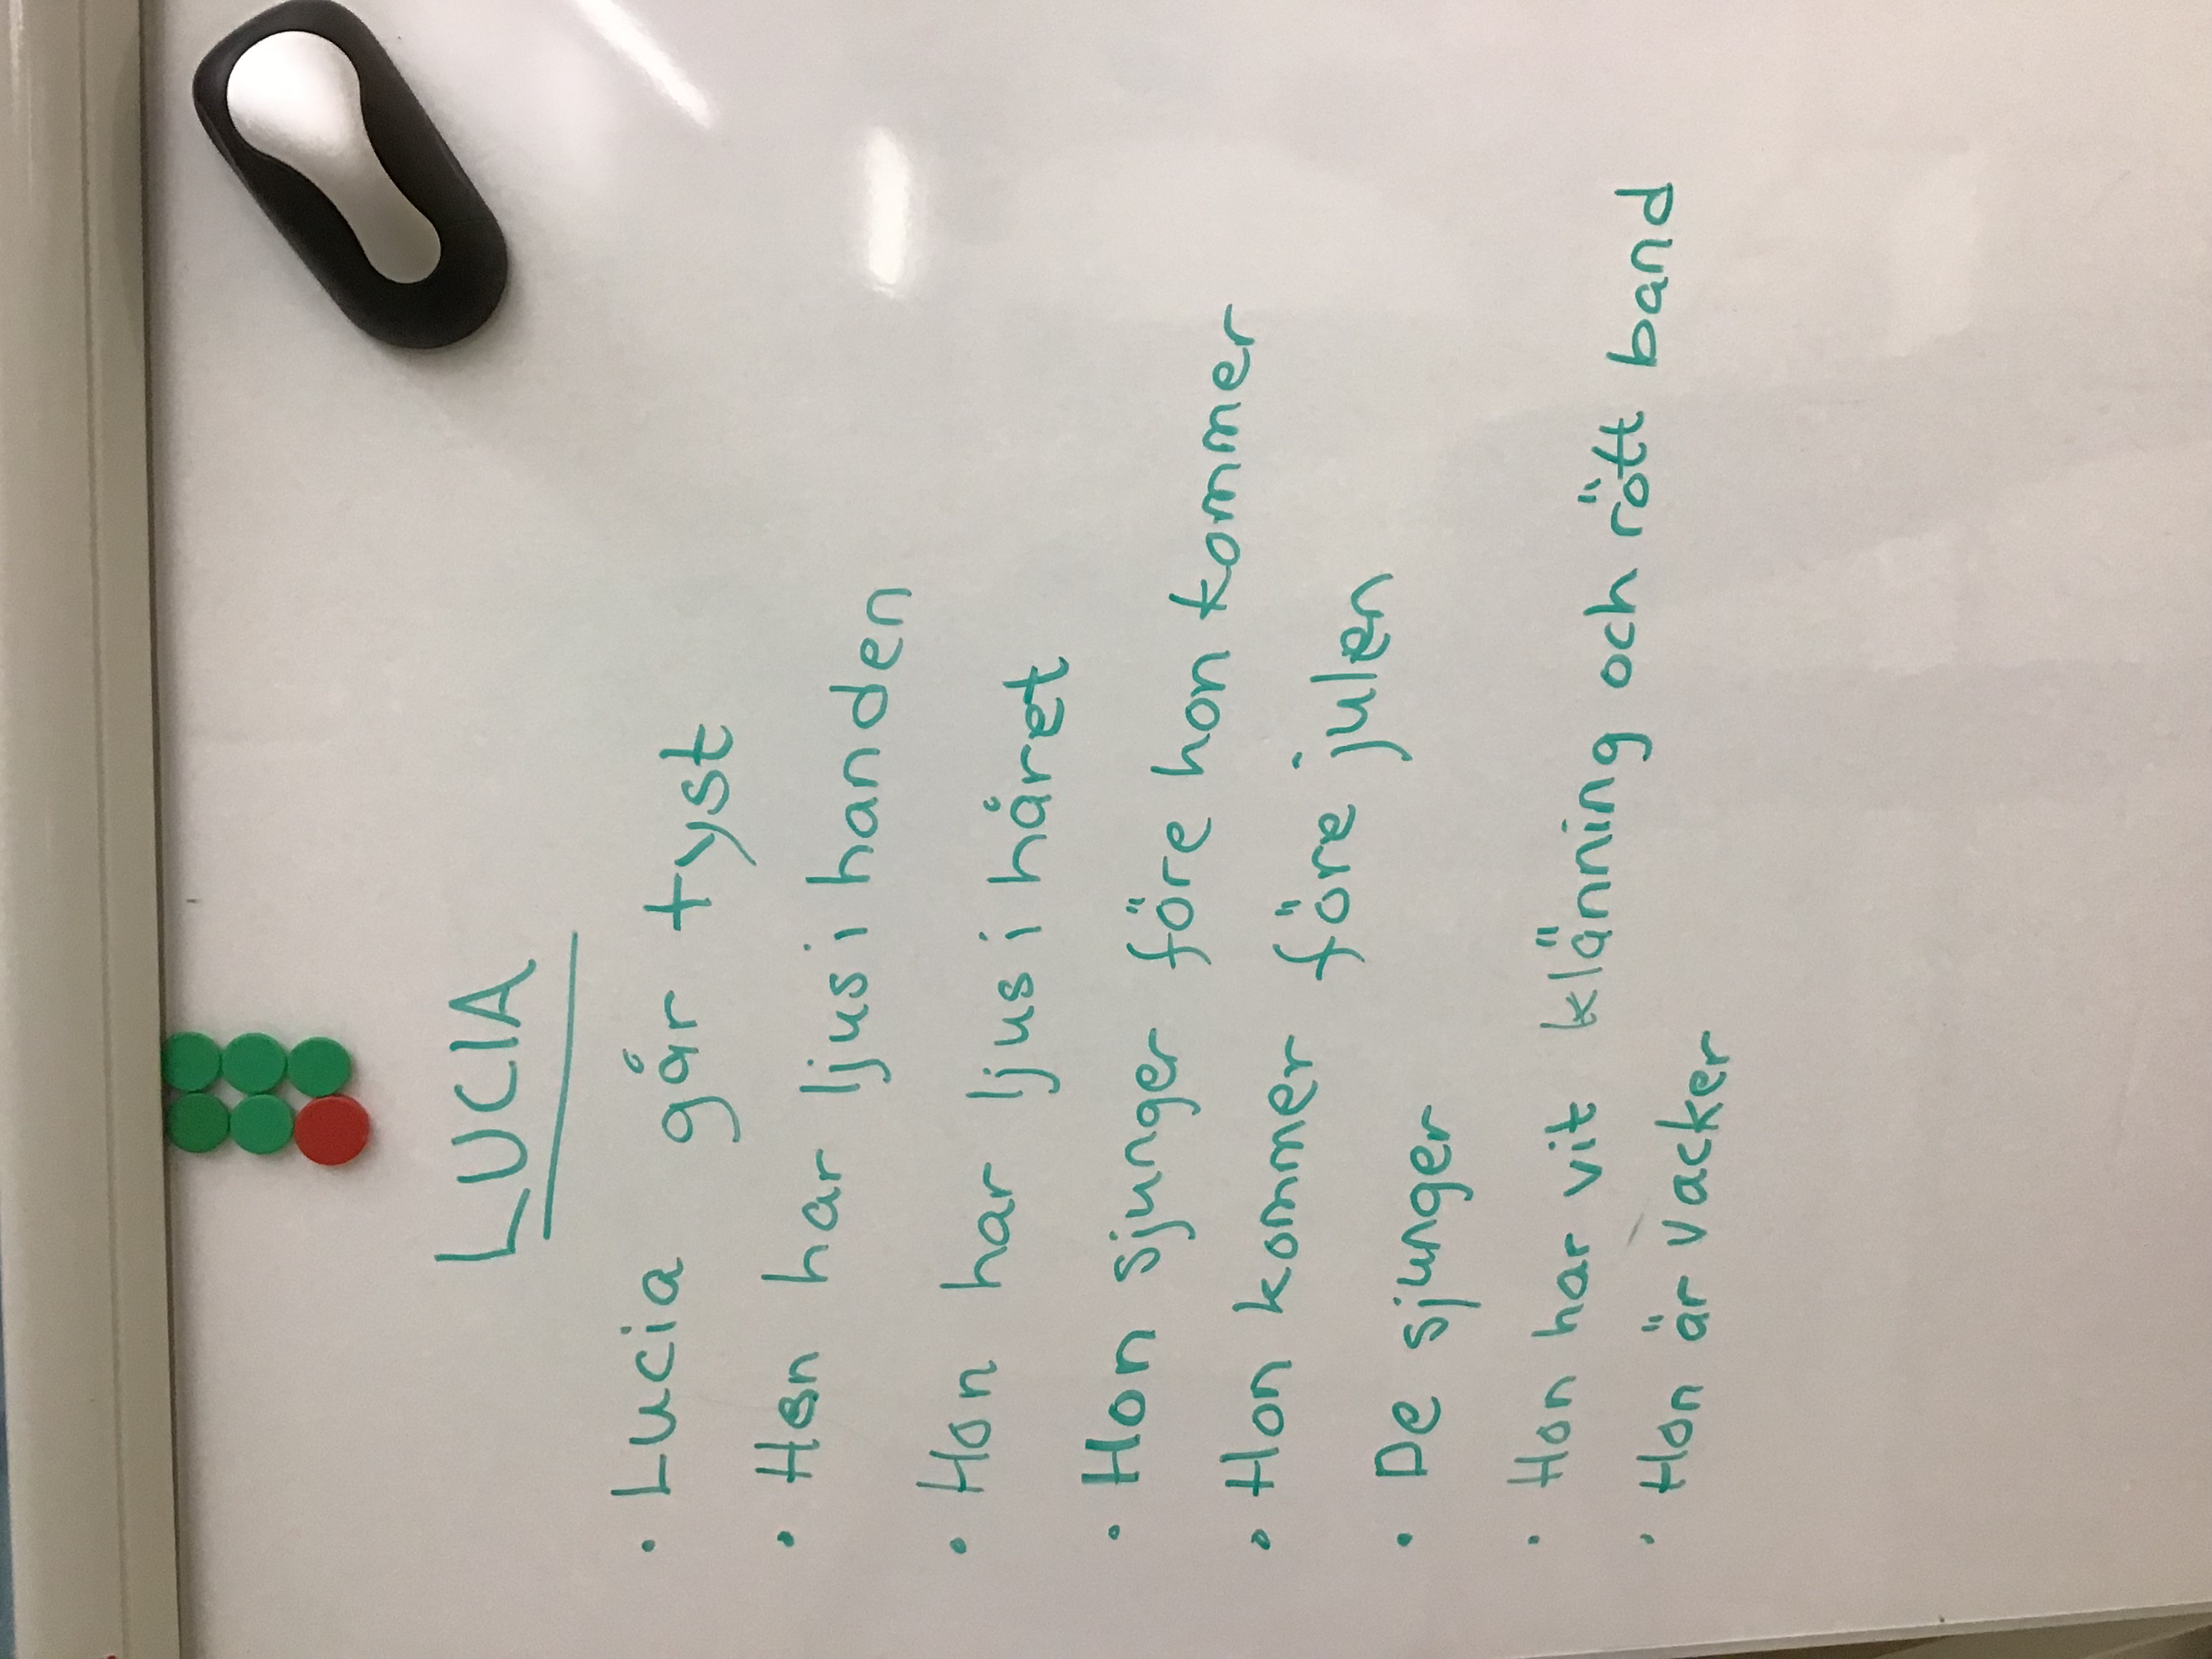 LUCIA
• Lucia går tyst
• Hon har ljus i handen
• Hon har ljus i håret
• Hon sjunger före hon kommer
• Hon kommer före julen
• De sjunger
• Hon har vit klänning och rött band
• Hon är vacker